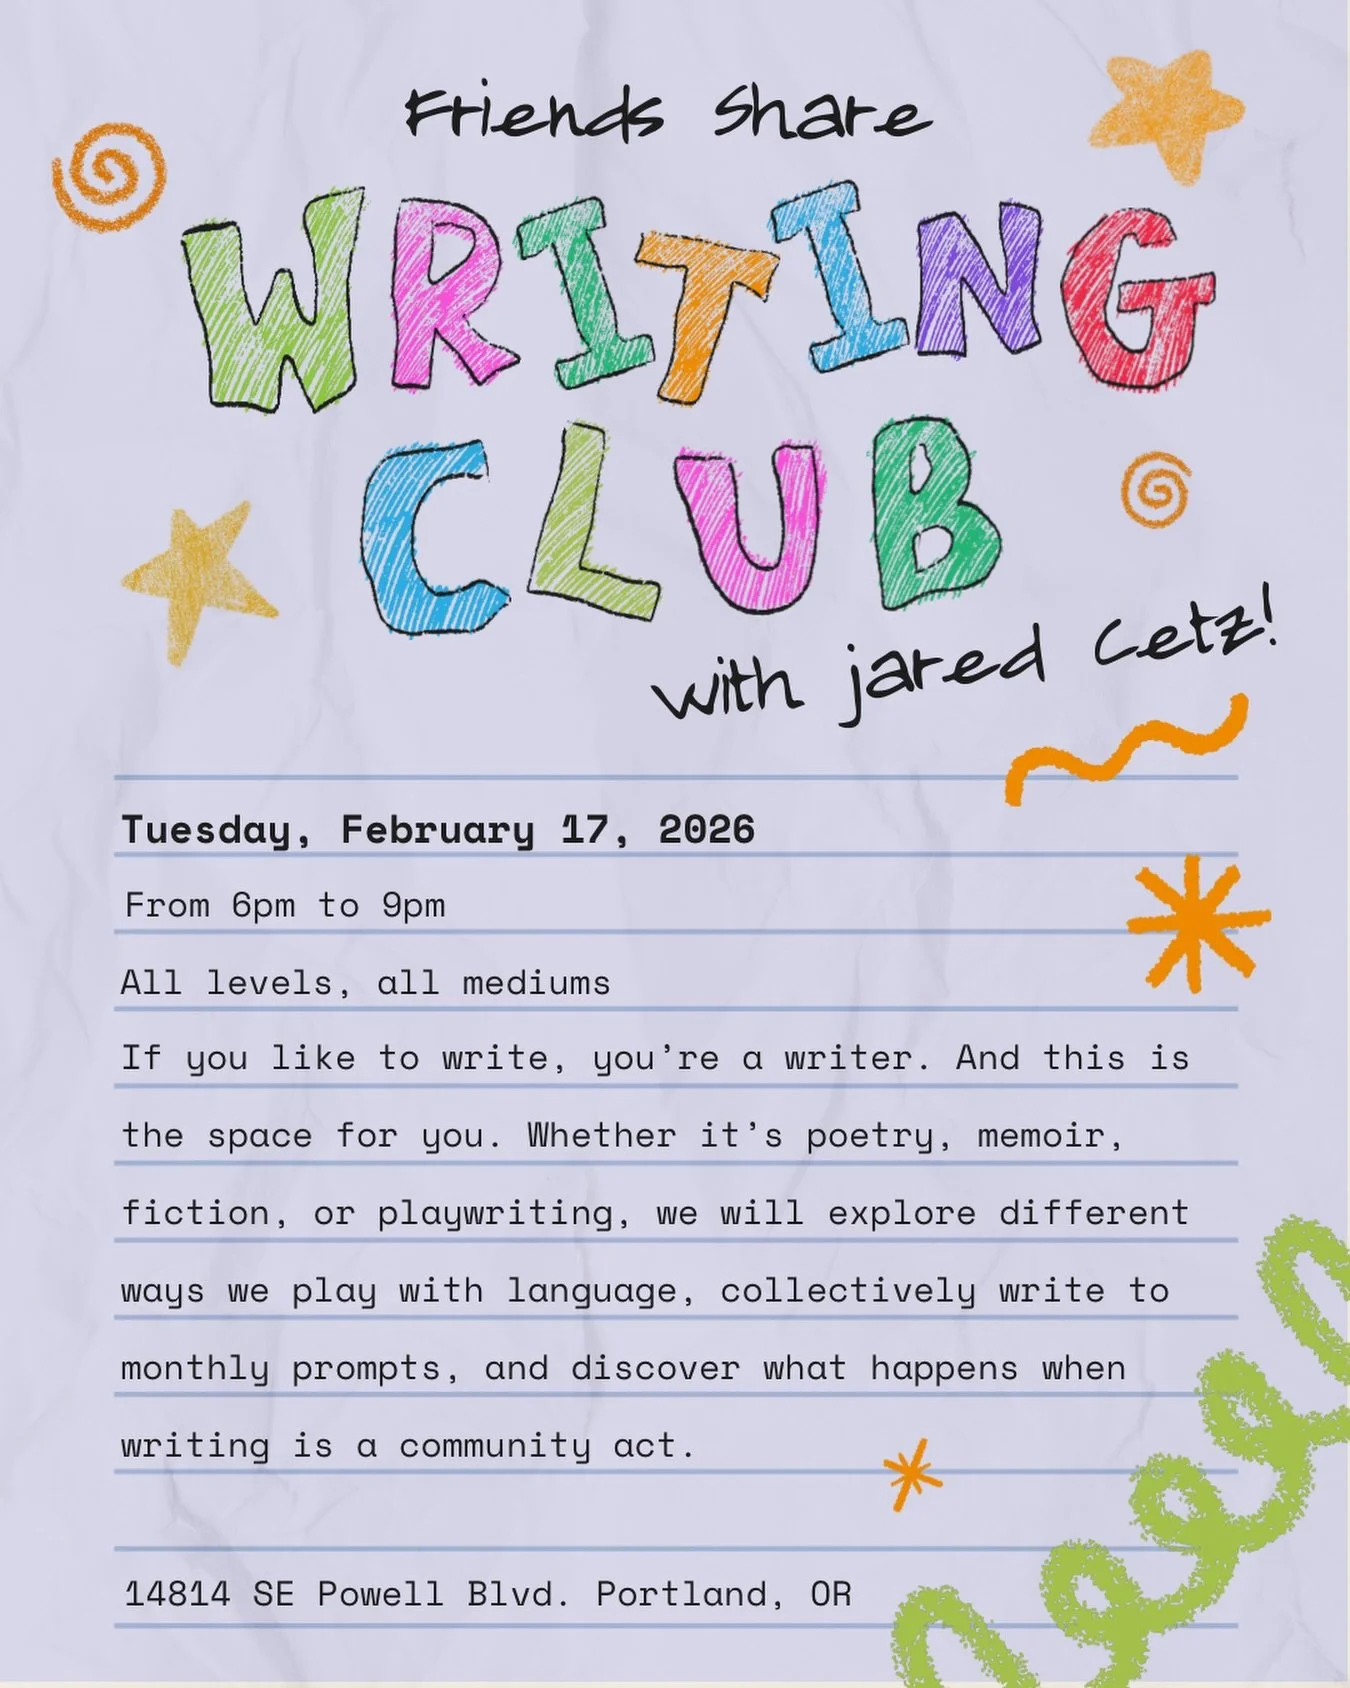 Friends Share
WRITING
CLUB
with jared Cetz!
Tuesday, February 17, 2026
From 6pm to 9pm
All levels, all mediums
If you like to write, you’re a writer. And this is
the space for you. Whether it’s poetry, memoir,
fiction, or playwriting, we will explore different
ways we play with language, collectively write to
monthly prompts, and discover what happens when
writing is a community act.
14814 SE Powell Blvd. Portland, OR